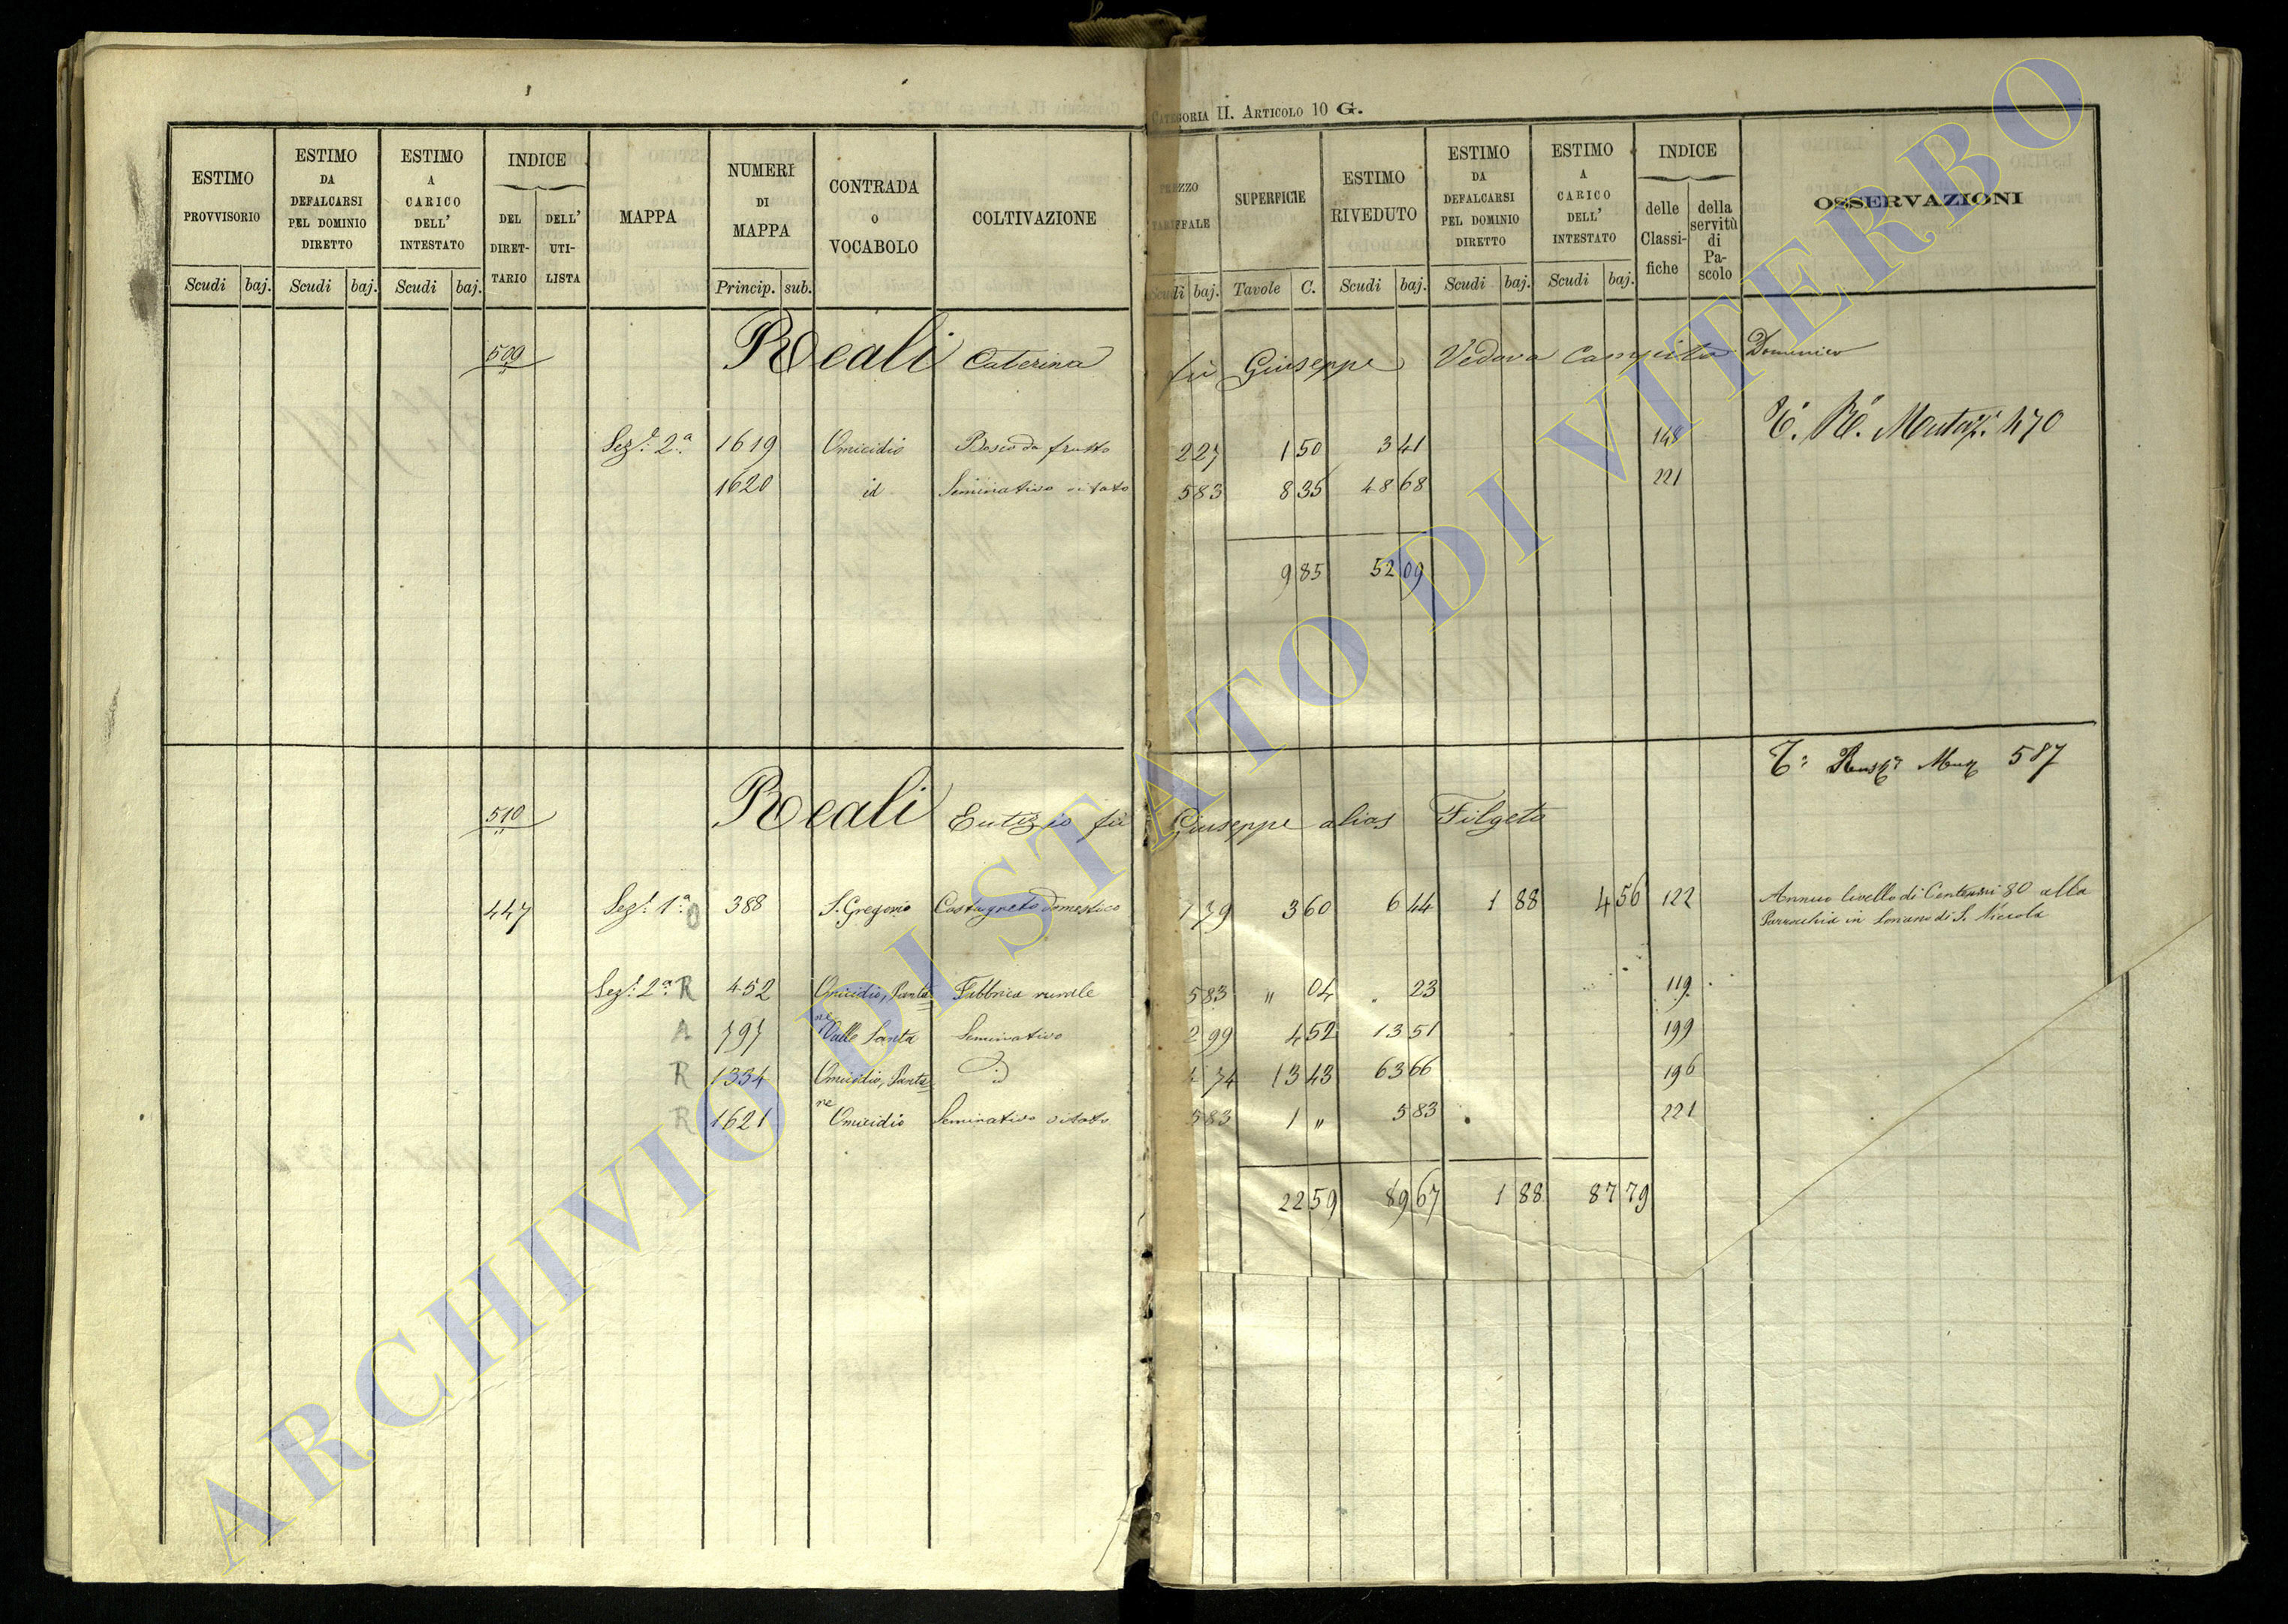 CATEGORIA II. ARTICOLO 10 G.
ESTIMO PROVVISORIO Scudi baj.
ESTIMO DA DEFALCARSI PEL DOMINIO DIRETTO Scudi baj.
ESTIMO A CARICO DELL' INTESTATO Scudi baj.
INDICE DEL DIRET-TARIO DELL' UTI-LISTA
MAPPA
NUMERI DI MAPPA Princip. sub.
CONTRADA o VOCABOLO
COLTIVAZIONE
PREZZO TARIFFALE Scudi baj.
SUPERFICIE Tavole C.
ESTIMO RIVEDUTO Scudi baj.
ESTIMO DA DEFALCARSI PEL DOMINIO DIRETTO Scudi baj.
ESTIMO A CARICO DELL' INTESTATO Scudi baj.
INDICE delle Classi-fiche della servitù di Pa-scolo
OSSERVAZIONI
509 Reali Caterina fu Giuseppe Vedova Domenico
470
Sez.e 2.a 1619 Omicidio Bosco da frutto 2 27 1 50 3 41 148
1620 id Seminativo vitato 5 83 8 35 48 68 221
9 85 52 09
587
510 Reali Eutizio fu Giuseppe alias Filgeto
447 Sez.e 1.a O 388 S. Gregorio Castagneto domestico 1 79 3 60 6 44 1 88 4 56 122 Annuo livello di Centesimi 80 alla
Parrocchia in Soriano di S. Niccola
Sez.e 2.a R 452 Omicidio, Panta= 
ne Fabbrica rurale 5 83 " 04 . 23 119
A 797 Valle Santa Seminativo 2 99 4 52 13 51 199
R 1334 Omicidio, Panta=
ne id 4 74 13 43 63 66 196
R 1621 Omicidio Seminativo vitato 5 83 1 " 5 83 221
22 59 89 67 1 88 87 79
ARCHIVIO DI STATO DI VITERBO